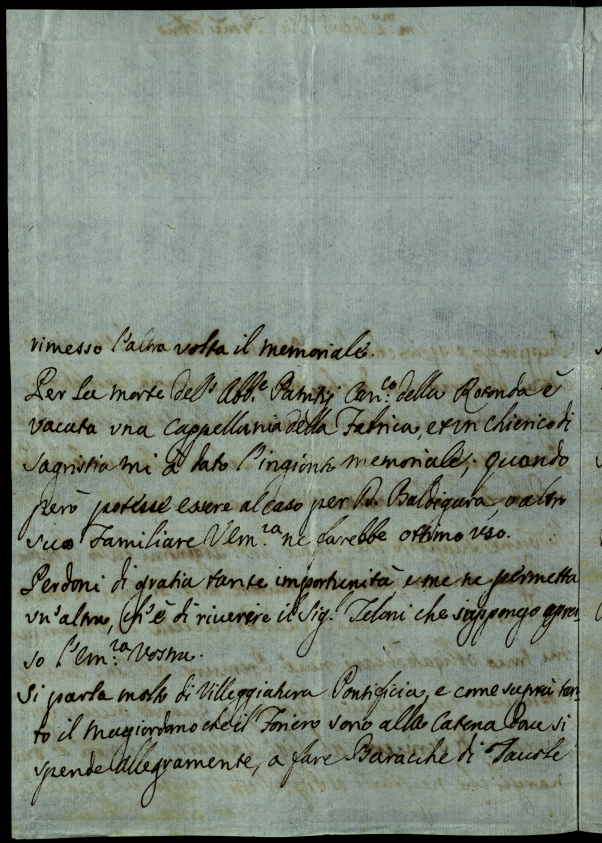 rimesso l'altra volta il memoriale.
Per la morte dell' Abb.e Patritj Can.co della Rotonda è
vacata una Cappellania della Fabrica, et un chierico di
sagristia mi à dato l'ingionto memoriale; quando
però potesse essere al caso per D. Baldigara, o altro
suo Familiare V Em.za ne farebbe ottimo uso.
Perdoni di gratia tante importunità e me ne permetta
un'altra, ch'è di riverire il Sig.r Teloni che suppongo apres-
so l'Em.za Vostra.
Si parla molto di Villeggiatura Pontificia, e come saprà tan-
to il Magiordomo che il Foriero sono alla Catena dove si
spende allegramente, a fare Baracche di Tavole